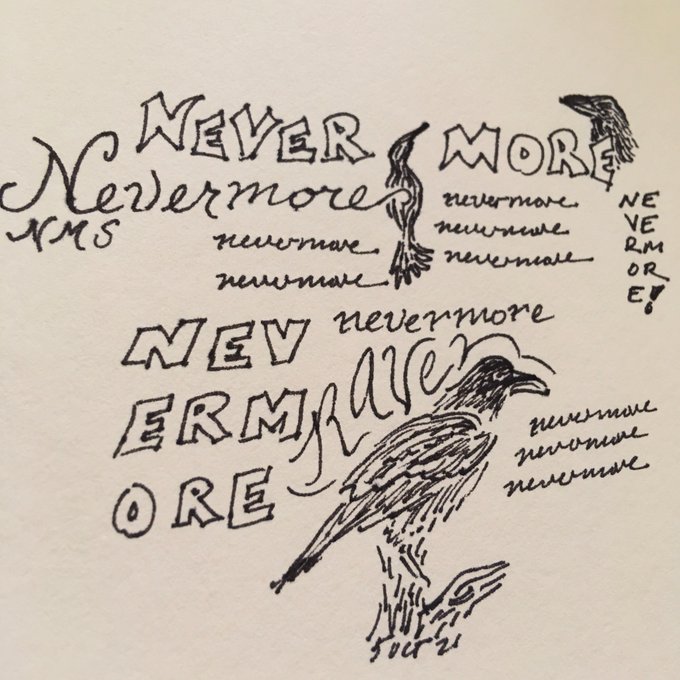 NEVER MORE
Nevermore
NMS
nevermore
nevermore
nevermore
nevermore
nevermore
NE
VE
RM
OR
E!
nevermore
NEV
ERM
ORE
Raven
nevermore
nevermore
nevermore
5 OCT 21